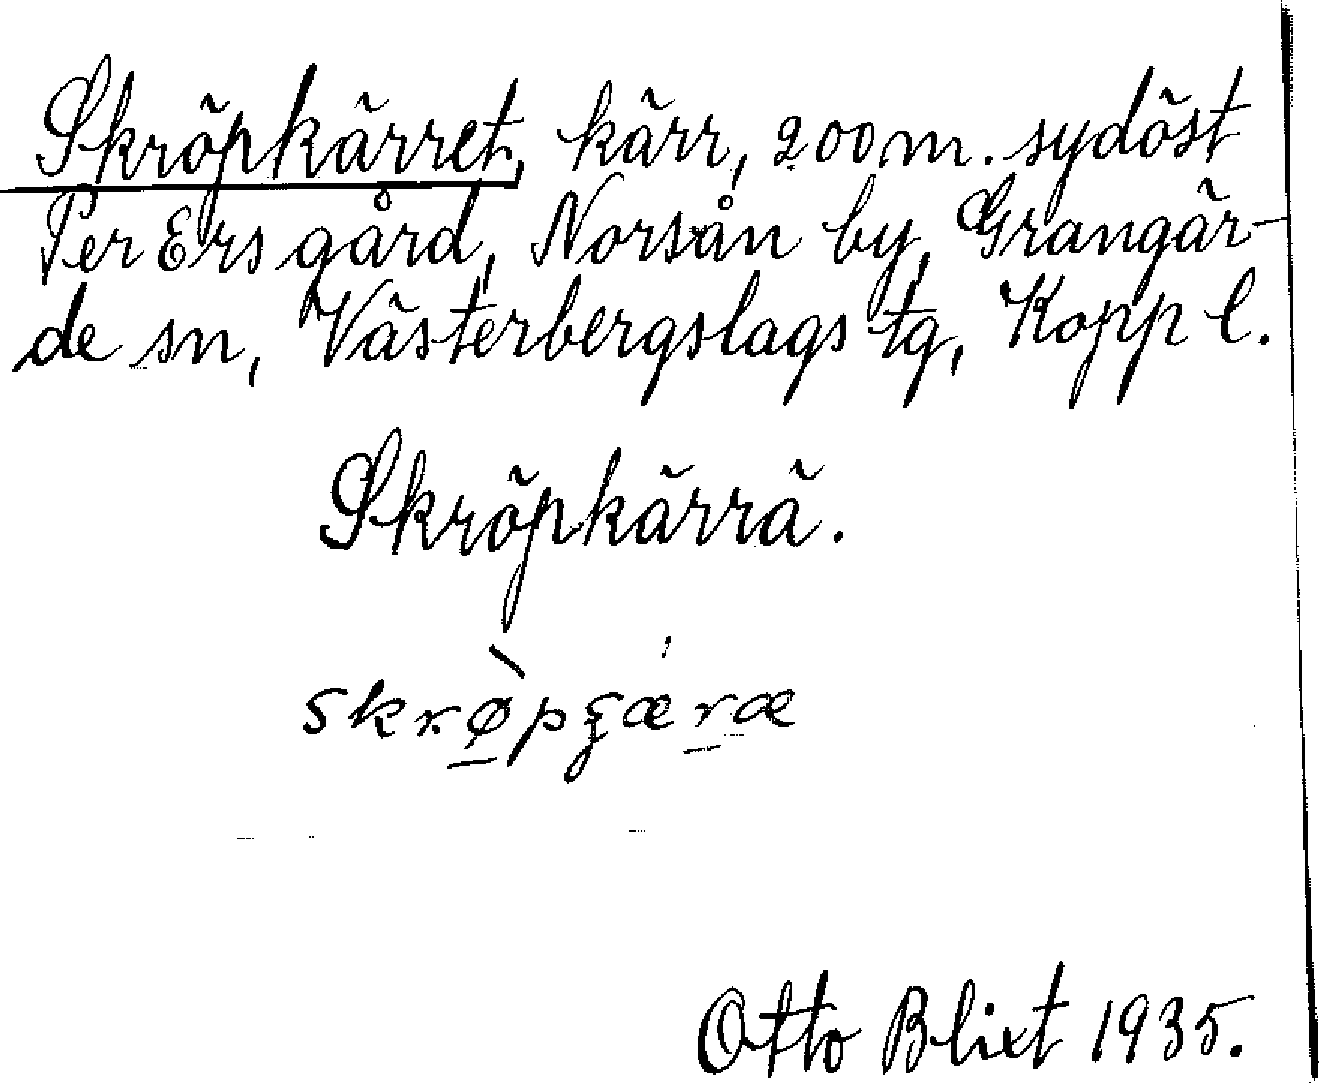 Skröpkärret, kärr, 200 m. sydöst
Per Ers gård, Norsån by, Grangär-
de sn, Västerbergslags tg, Kopp l.
Skröpkärrä.
Otto Blixt 1935.